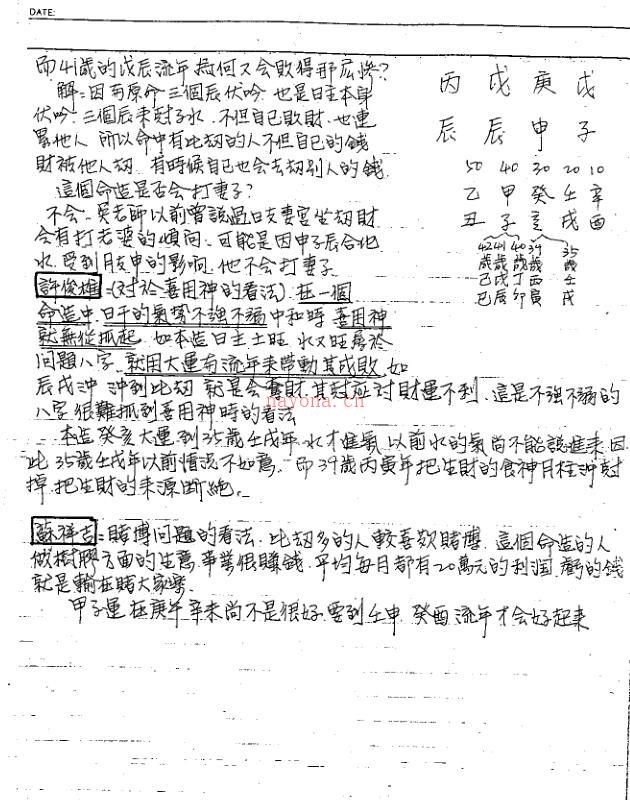 DATE:
而41歲的戊辰流年為何又会敗得那麼慘?
解=因為原命三個辰伏吟 也是日主本身
伏吟 三個辰來尅子水 不但自己敗財 也連
累他人 所以命中有比劫的人不但自己的錢
財被他人劫 有時候自己也会去劫別人的錢
這個命造是否会打妻子?
不会 吳老師以前曾談過日支妻宮坐劫財
会有打老婆的傾向 可能是因申子辰合化
水 受到月支申的影响 他不会打妻子
許俊雄=(对於喜用神的看法) 在一個
命造中 日干的氣勢不强不弱 中和時 喜用神
就無從抓起 如本造日主土旺 水又旺 屬於
問題八字 就用大運与流年來帶動其成敗 如
辰戌沖 沖到比劫 就是会奪財 其对应对財運不利 這是不强不弱的
八字很難抓到喜用神時的看法
本造癸亥大運 到35歲壬戌年 水才進氣 以前水的氣尚不能說進來 因
此35歲壬戌年以前情況不如意 即39歲丙寅年把生財的食神月柱沖尅
掉 把生財的來源断絶
蘇祥吉=賭博問題的看法 比劫多的人較喜歡賭博 這個命造的人
做樹膠方面的生意 事業很賺錢 平均每日都有20萬元的利潤 虧的錢
就是輸在賭大家樂
甲子運在庚午辛未尚不是很好 要到壬申 癸酉流年才会好起來
丙 戊 庚 戊
辰 辰 申 子
50 40 30 20 10
乙 甲 癸 壬 辛
丑 子 亥 戌 酉
42 41 40 39 35
歲 歲 歲 歲 歲
己 戊 丁 丙 壬
巳 辰 卯 寅 戌
nayona.cn